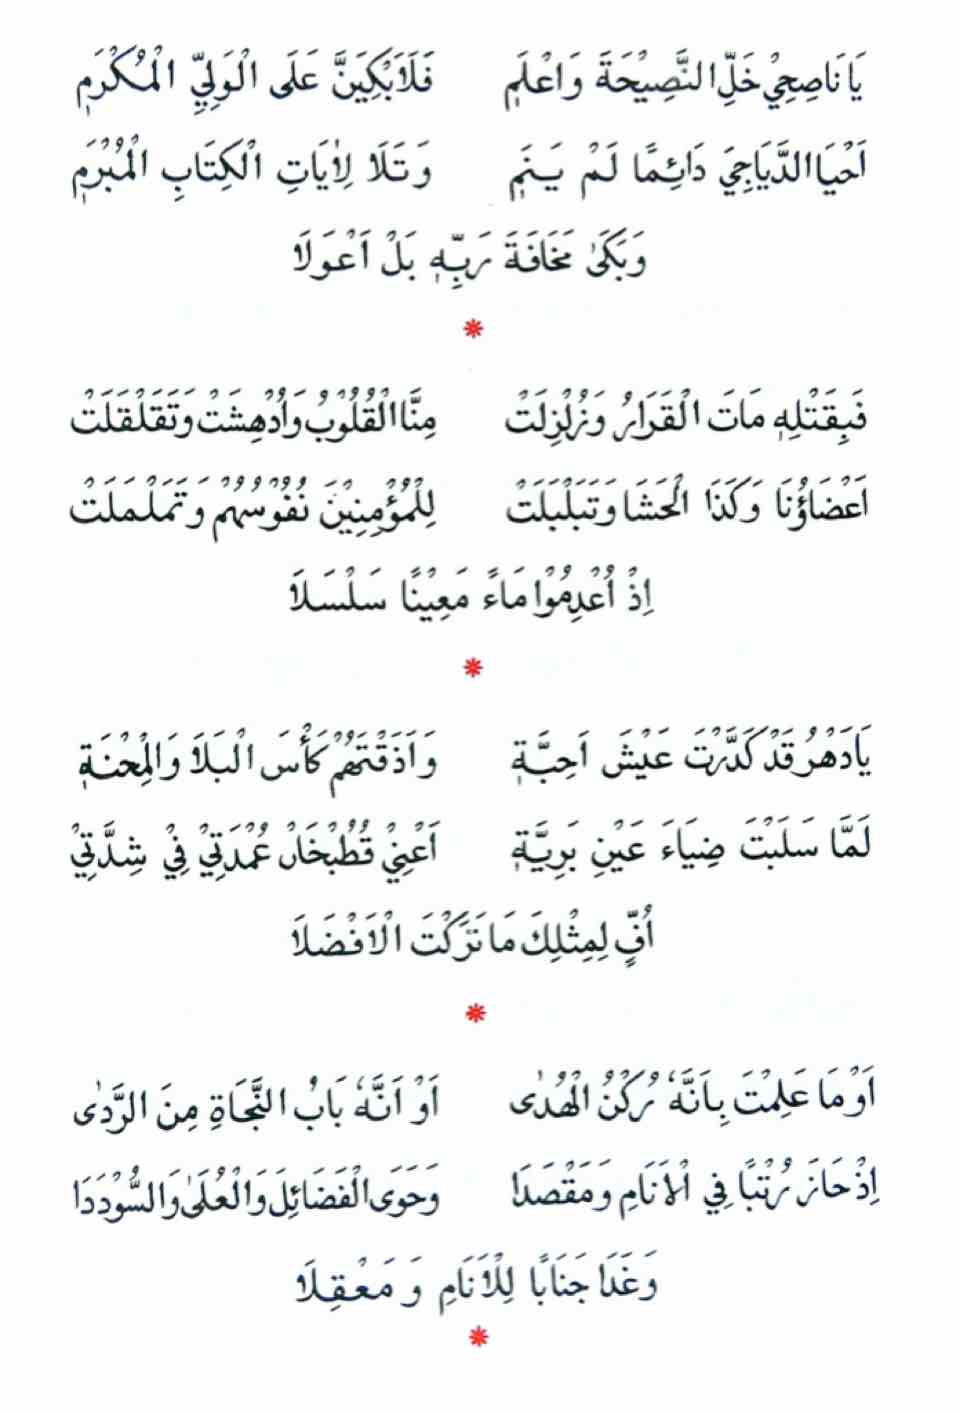 يَا نَاصِحِيْ خَلِّ النَّصِيْحَةَ وَاعْلَمِ فَلَاَبْكِيَنَّ عَلَى الْوَلِيِّ الْمُكْرَمِ
اَحْيَا الدَّيَاجِيَ دَائِمًا لَمْ يَنَمِ وَتَلَا لِاٰيَاتِ الْكِتَابِ الْمُبْرَمِ
وَبَكَىٰ مَخَافَةَ رَبِّهٖ بَلْ اَعْوَلَا
فَبِقَتْلِهٖ مَاتَ الْقَرَارُ وَزُلْزِلَتْ مِنَّا الْقُلُوْبُ وَاُدْهِشَتْ وَتَقَلْقَلَتْ
اَعْضَاؤُنَا وَكَذَا الْحَشَا وَتَبَلْبَلَتْ لِلْمُؤْمِنِيْنَ نُفُوْسُهُمْ وَتَمَلْمَلَتْ
اِذْ اُعْدِمُوْا مَاءً مَعِيْنًا سَلْسَلَا
يَا دَهْرُ قَدْ كَدَّرْتَ عَيْشَ اَحِبَّةٖ وَاَذَقْتَهُمْ كَأْسَ الْبَلَا وَالْمِحْنَةِ
لَمَّا سَلَبْتَ ضِيَاءَ عَيْنِ بَرِيَّةٖ اَعْنِيْ قُطُبْخَانْ عُمْدَتِيْ فِيْ شِدَّتِيْ
اُفٍّ لِمِثْلِكَ مَا تَرَكْتَ الْاَفْضَلَا
اَوْ مَا عَلِمْتَ بِاَنَّهٗ رُكْنُ الْهُدٰى اَوْ اَنَّهٗ بَابُ النَّجَاةِ مِنَ الرَّدٰى
اِذْ حَازَ رُتْبًا فِي الْاَنَامِ وَمَقْصَدَا وَحَوَى الْفَضَائِلَ وَالْعُلَىٰ وَالسُّوْدَدَا
وَغَدَا جَنَابًا لِلْاَنَامِ وَمَعْقِلَا